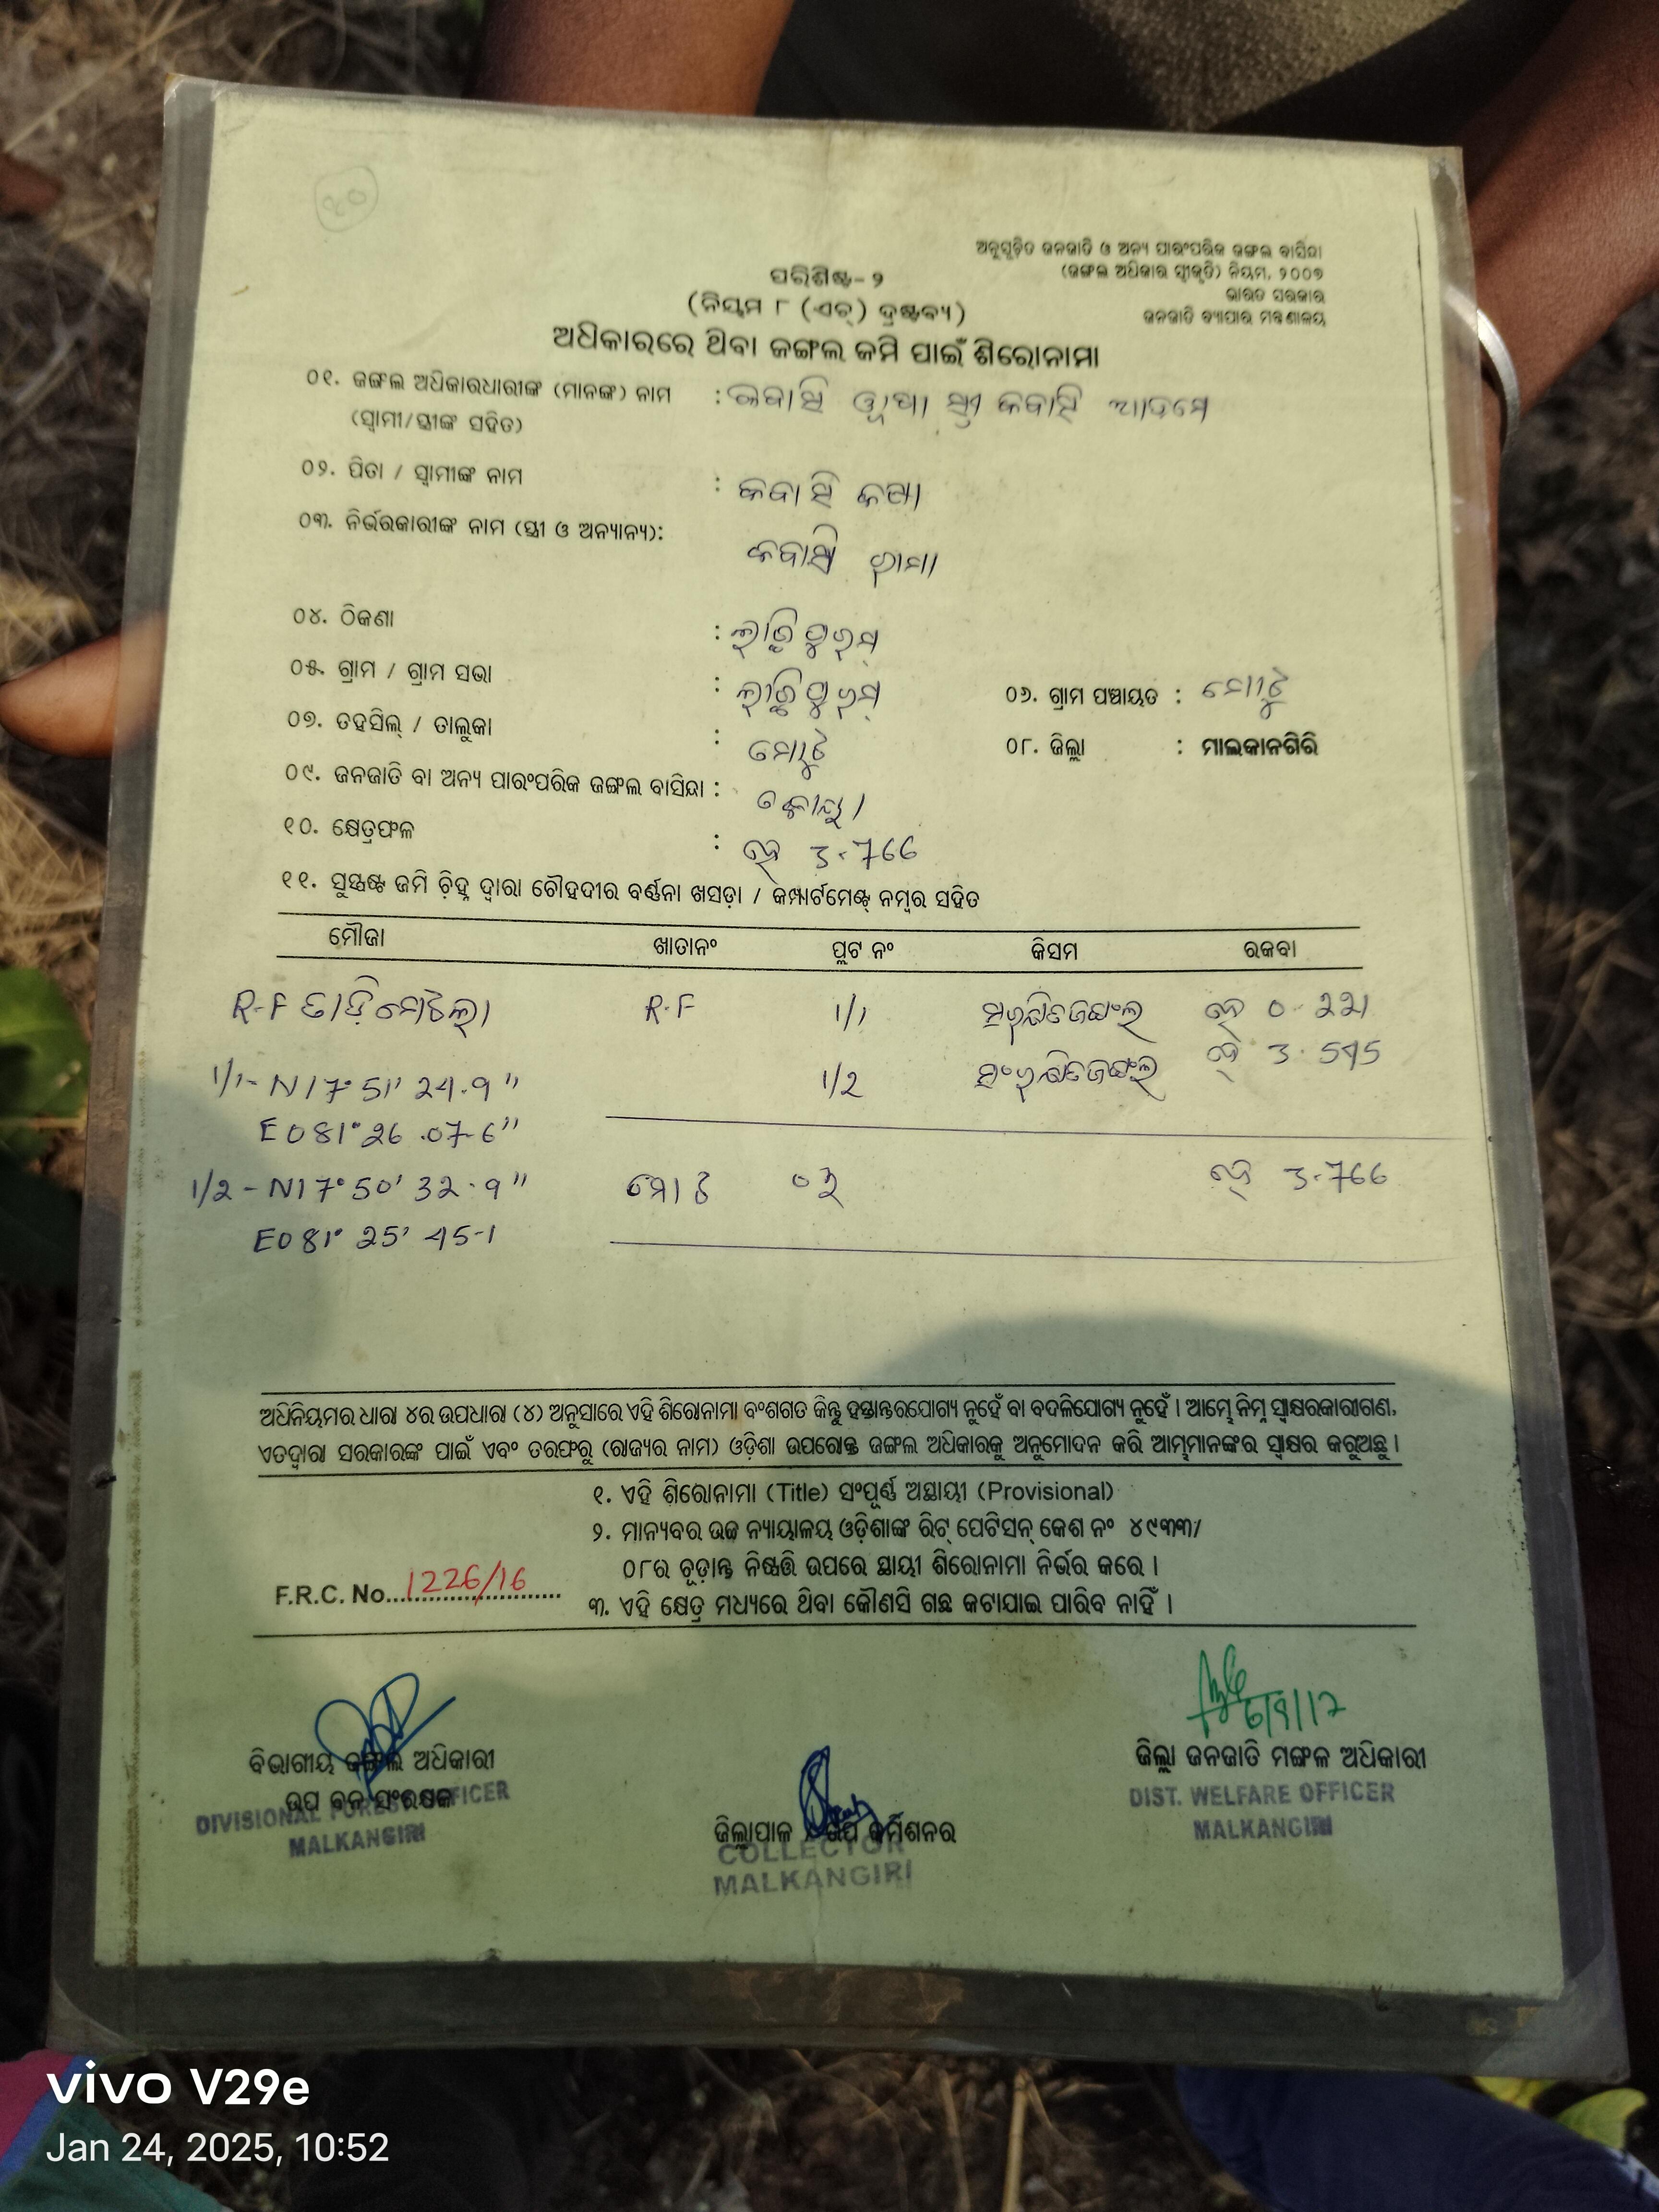 ୧୦
ଅନୁସୂଚିତ ଜନଜାତି ଓ ଅନ୍ୟ ପାରଂପରିକ ଜଙ୍ଗଲ ବାସିନ୍ଦା
(ଜଙ୍ଗଲ ଅଧିକାର ସ୍ୱୀକୃତି) ନିୟମ, ୨୦୦୭
ଭାରତ ସରକାର
ଜନଜାତି ବ୍ୟାପାର ମନ୍ତ୍ରଣାଳୟ
ପରିଶିଷ୍ଟ-୨
(ନିୟମ ୮ (ଏଚ୍) ଦ୍ରଷ୍ଟବ୍ୟ)
ଅଧିକାରରେ ଥିବା ଜଙ୍ଗଲ ଜମି ପାଇଁ ଶିରୋନାମା
୦୧. ଜଙ୍ଗଲ ଅଧିକାରଧାରୀଙ୍କ (ମାନଙ୍କ) ନାମ : କବାସି ସ୍ତ୍ରୀ କବାସି ଆଦମେ
(ସ୍ୱାମୀ/ସ୍ତ୍ରୀଙ୍କ ସହିତ)
୦୨. ପିତା / ସ୍ୱାମୀଙ୍କ ନାମ : କବାସି
୦୩. ନିର୍ଭରକାରୀଙ୍କ ନାମ (ସ୍ତ୍ରୀ ଓ ଅନ୍ୟାନ୍ୟ): କବାସି
୦୪. ଠିକଣା :
୦୫. ଗ୍ରାମ / ଗ୍ରାମ ସଭା : ୦୬. ଗ୍ରାମ ପଞ୍ଚାୟତ : ମୋଟୁ
୦୭. ତହସିଲ୍ / ତାଲୁକା : ମୋଟୁ ୦୮. ଜିଲ୍ଲା : ମାଲକାନଗିରି
୦୯. ଜନଜାତି ବା ଅନ୍ୟ ପାରଂପରିକ ଜଙ୍ଗଲ ବାସିନ୍ଦା : କୋୟା
୧୦. କ୍ଷେତ୍ରଫଳ : ହେ 3.766
୧୧. ସୁସ୍ପଷ୍ଟ ଜମି ଚିହ୍ନ ଦ୍ୱାରା ଚୌହଦୀର ବର୍ଣ୍ଣନା ଖସଡ଼ା / କମ୍ପାର୍ଟମେଣ୍ଟ୍ ନମ୍ବର ସହିତ
ମୌଜା ଖାତାନଂ ପ୍ଲଟ ନଂ କିସମ ରକବା
R.F R.F 1/1 ସଂରକ୍ଷିତଜଙ୍ଗଲ ହେ 0.221
1/1- N17°51' 24.9" 1/2 ସଂରକ୍ଷିତଜଙ୍ଗଲ ହେ 3.545
E081°26 .07.6"
1/2 - N17°50' 32.9" ମୋଟ ୦୨ ହେ 3.766
E081° 25' 45.1
ଅଧିନିୟମର ଧାରା ୪ର ଉପଧାରା (୪) ଅନୁସାରେ ଏହି ଶିରୋନାମା ବଂଶଗତ କିନ୍ତୁ ହସ୍ତାନ୍ତରଯୋଗ୍ୟ ନୁହେଁ ବା ବଦଳିଯୋଗ୍ୟ ନୁହେଁ । ଆମ୍ଭେ ନିମ୍ନ ସ୍ୱାକ୍ଷରକାରୀଗଣ,
ଏତଦ୍ୱାରା ସରକାରଙ୍କ ପାଇଁ ଏବଂ ତରଫରୁ (ରାଜ୍ୟର ନାମ) ଓଡ଼ିଶା ଉପରୋକ୍ତ ଜଙ୍ଗଲ ଅଧିକାରକୁ ଅନୁମୋଦନ କରି ଆମ୍ଭମାନଙ୍କର ସ୍ୱାକ୍ଷର କରୁଅଛୁ ।
୧. ଏହି ଶିରୋନାମା (Title) ସଂପୂର୍ଣ୍ଣ ଅସ୍ଥାୟୀ (Provisional)
୨. ମାନ୍ୟବର ଉଚ୍ଚ ନ୍ୟାୟାଳୟ ଓଡ଼ିଶାଙ୍କ ରିଟ୍ ପେଟିସନ୍ କେଶ ନଂ ୪୯୩୩/
୦୮ର ଚୂଡ଼ାନ୍ତ ନିଷ୍ପତ୍ତି ଉପରେ ସ୍ଥାୟୀ ଶିରୋନାମା ନିର୍ଭର କରେ ।
F.R.C. No. 1226/16
୩. ଏହି କ୍ଷେତ୍ର ମଧ୍ୟରେ ଥିବା କୌଣସି ଗଛ କଟାଯାଇ ପାରିବ ନାହିଁ ।
6/9/17
ବିଭାଗୀୟ ଜଙ୍ଗଲ ଅଧିକାରୀ
ଉପ ବନ ସଂରକ୍ଷକ
DIVISIONAL FOREST OFFICER
MALKANGIRI
ଜିଲ୍ଲାପାଳ / ଉପ କମିଶନର
COLLECTOR
MALKANGIRI
ଜିଲ୍ଲା ଜନଜାତି ମଙ୍ଗଳ ଅଧିକାରୀ
DIST. WELFARE OFFICER
MALKANGIRI
vivo V29e
Jan 24, 2025, 10:52